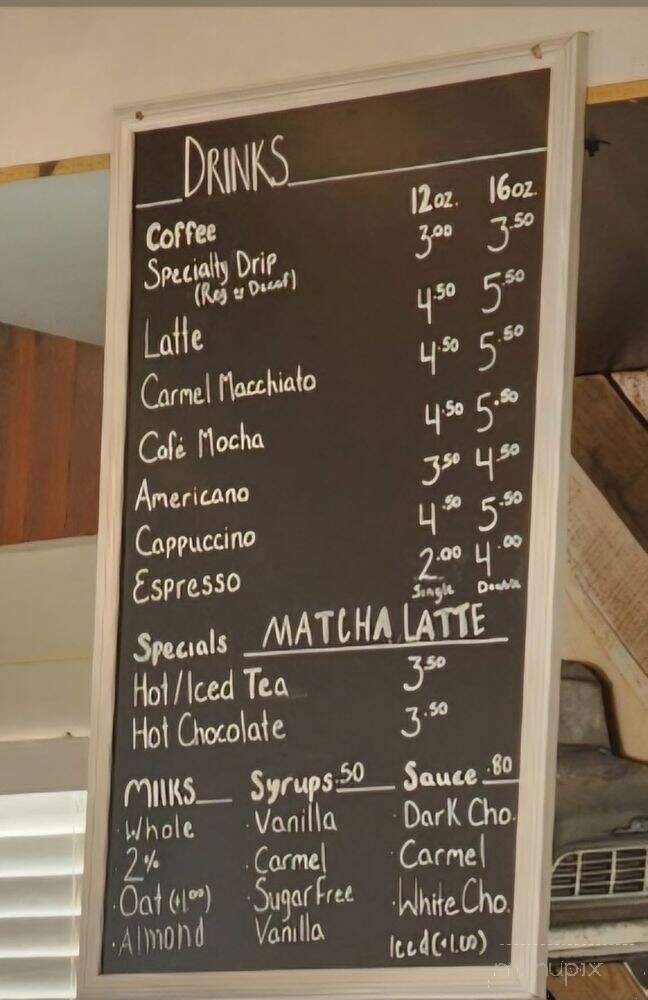 DRINKS
12oz. 16oz.
Coffee 3.00 3.50
Specialty Drip
(Reg or Decaf)
4.50 5.50
Latte 4.50 5.50
Carmel Macchiato
4.50 5.50
Café Mocha
3.50 4.50
Americano 4.50 5.50
Cappuccino 2.00 4.00
Espresso Single Double
Specials MATCHA LATTE
Hot/Iced Tea 3.50
Hot Chocolate 3.50
Milks Syrups .50 Sauce .80
· Whole · Vanilla · Dark Cho.
· 2% · Carmel · Carmel
· Oat (+1.00) · Sugar Free · White Cho.
· Almond Vanilla Iced (+1.00)
menupix